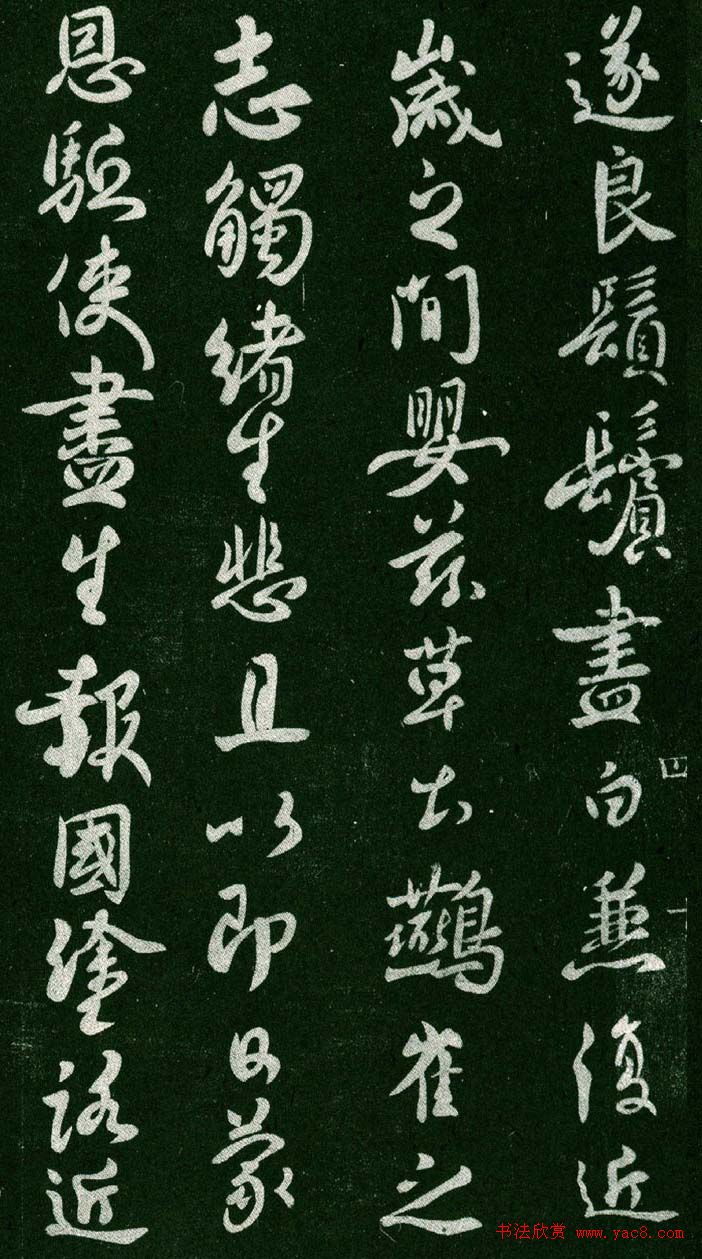 遂良鬚鬢盡白兼復近
歲之間嬰茲草土鷰雀之
志觸緒生悲且以即日蒙
恩駈使盡生報國塗路近
四
一
书法欣赏 www.yac8.com